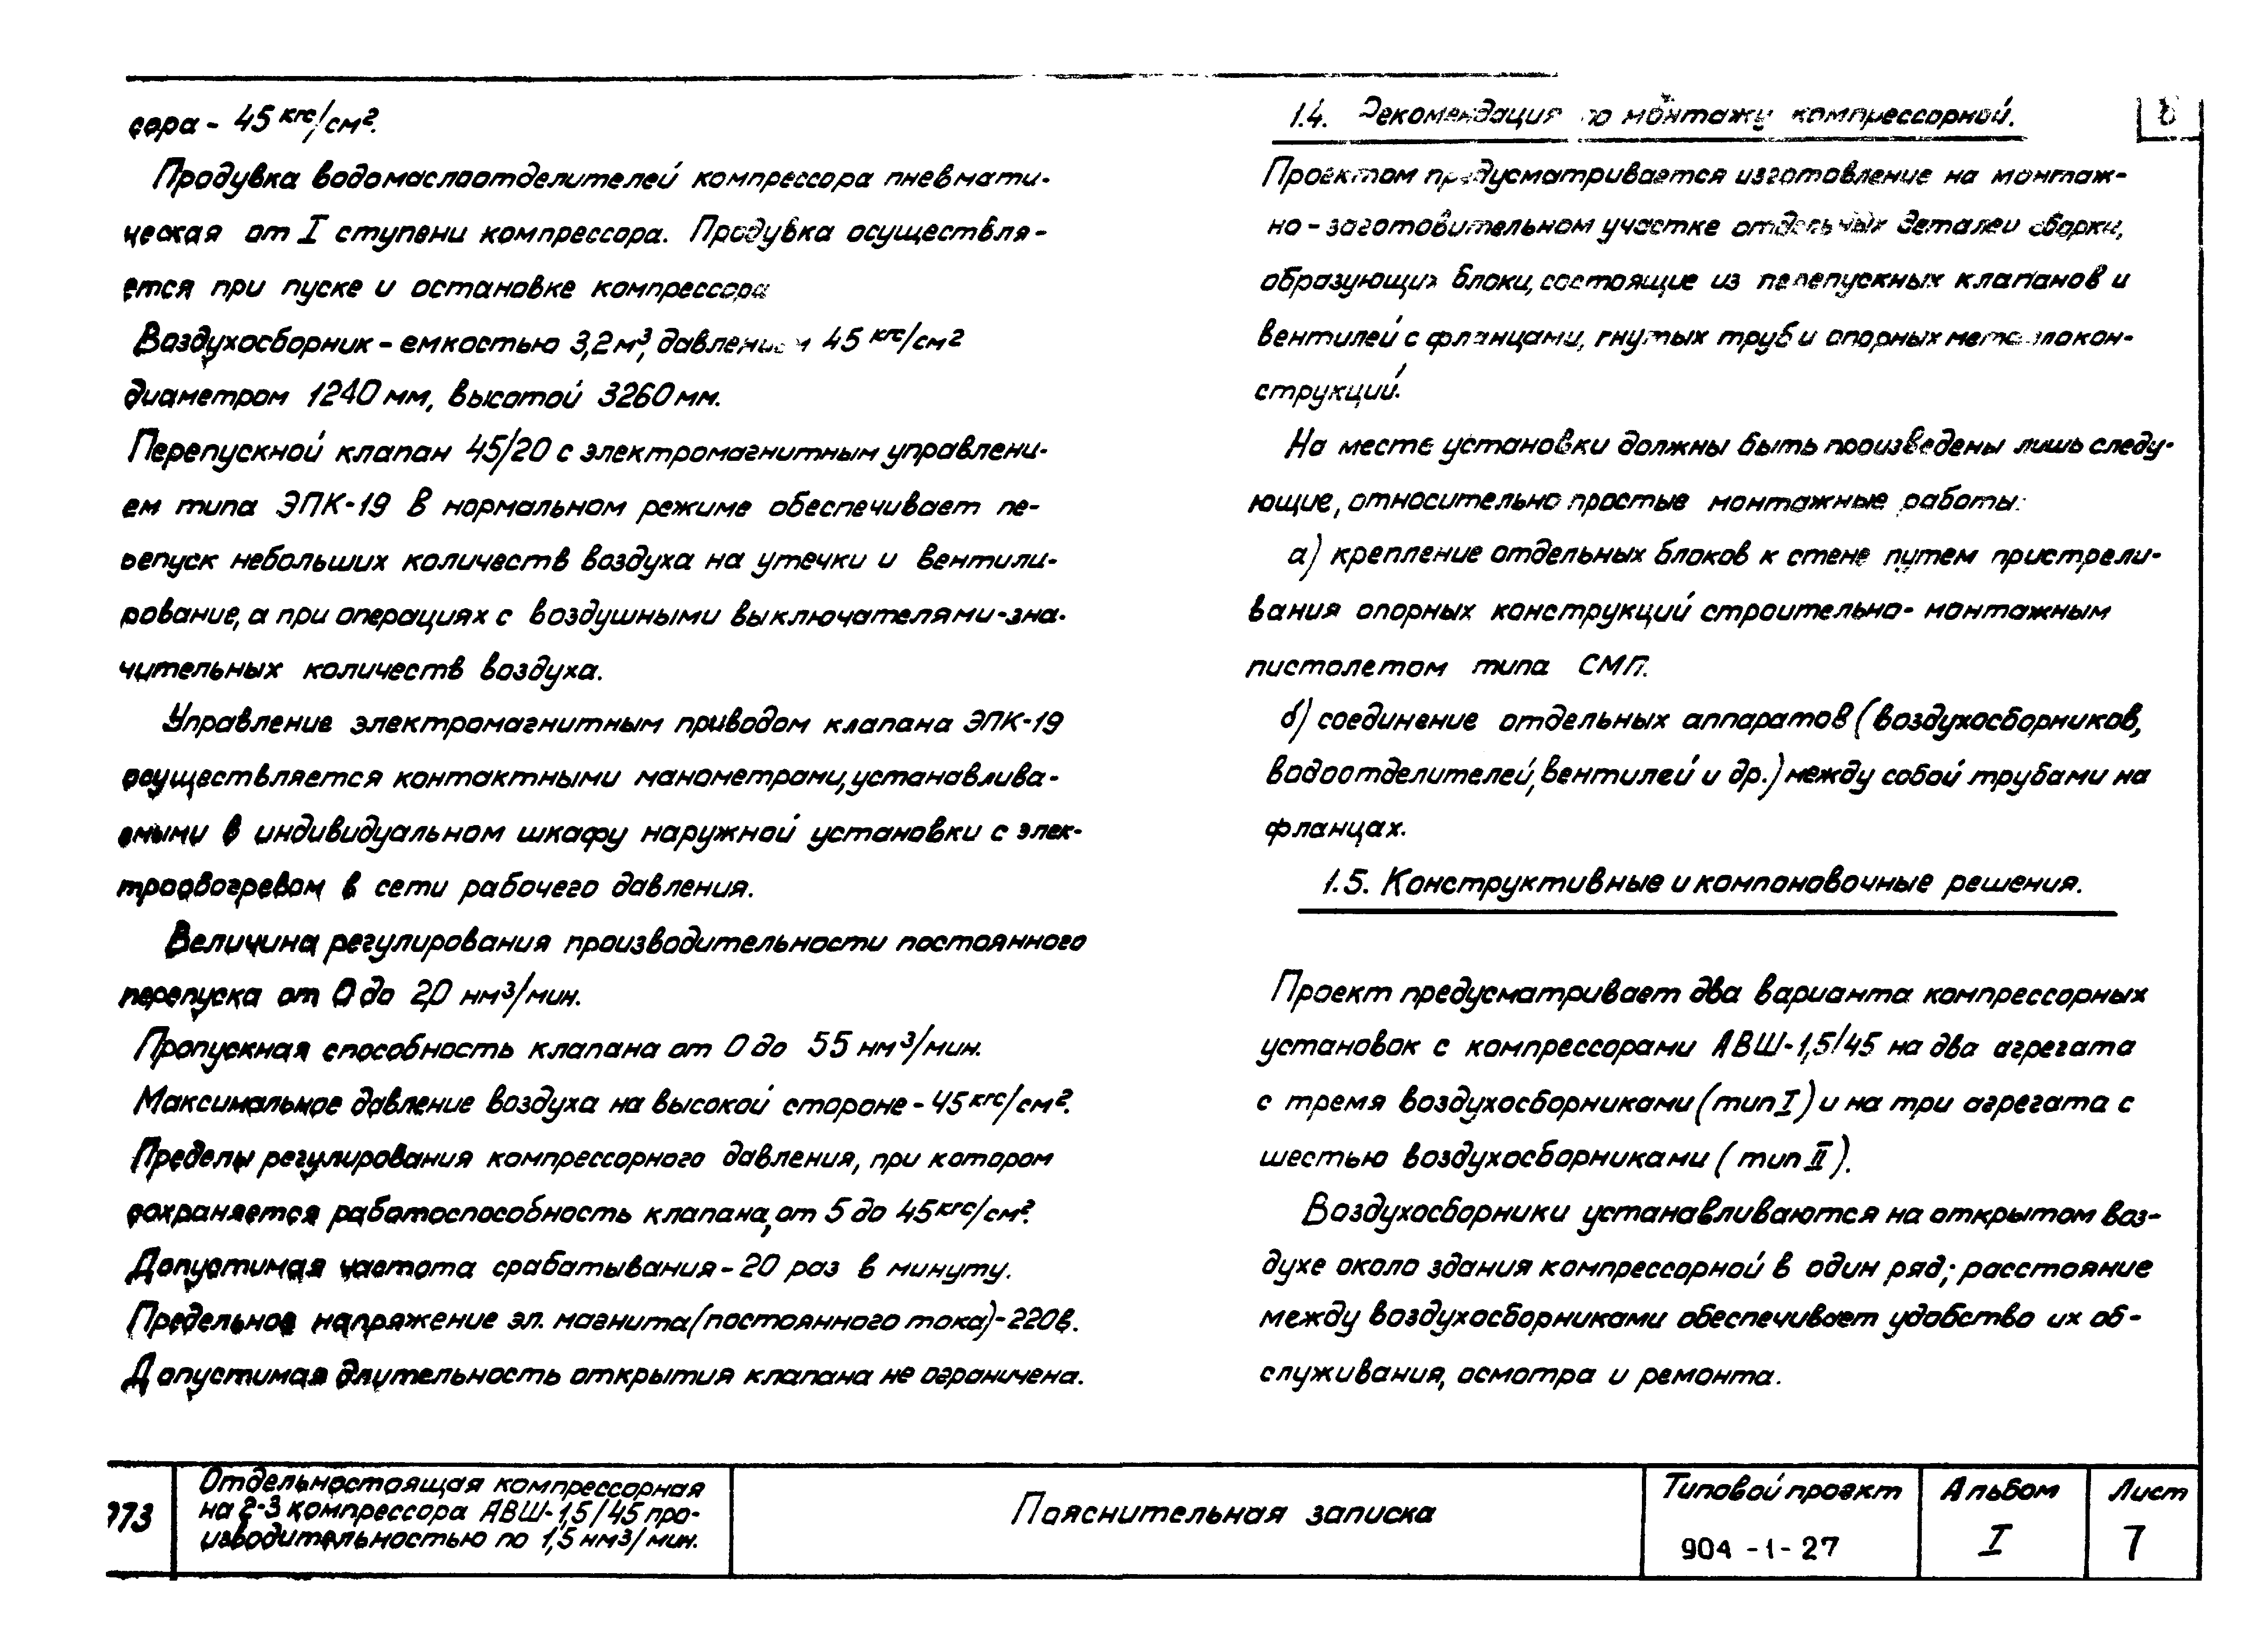 сора - 45 кгс/см².
Продувка водомаслоотделителей компрессора пневмати-
ческая от I ступени компрессора. Продувка осуществля-
ется при пуске и остановке компрессора
Воздухосборник - емкостью 3,2 м³, давлением 45 кгс/см²
диаметром 1240 мм, высотой 3260 мм.
Перепускной клапан 45/20 с электромагнитным управлени-
ем типа ЭПК-19 в нормальном режиме обеспечивает пе-
репуск небольших количеств воздуха на утечки и вентили-
рование, а при операциях с воздушными выключателями-зна-
чительных количеств воздуха.
Управление электромагнитным приводом клапана ЭПК-19
осуществляется контактными манометрами, устанавлива-
емыми в индивидуальном шкафу наружной установки с элек-
трообогревом в сети рабочего давления.
Величина регулирования производительности постоянного
перепуска от 0 до 2,0 нм³/мин.
Пропускная способность клапана от 0 до 55 нм³/мин.
Максимальное давление воздуха на высокой стороне - 45 кгс/см².
Пределы регулирования компрессорного давления, при котором
сохраняется работоспособность клапана, от 5 до 45 кгс/см².
Допустимая частота срабатывания - 20 раз в минуту.
Предельное напряжение эл. магнита (постоянного тока) - 220 в.
Допустимая длительность открытия клапана не ограничена.
1.4. Рекомендация по монтажу компрессорной.
8
Проектом предусматривается изготовление на монтаж-
но - заготовительном участке отдельных деталей сборки,
образующих блоки, состоящие из перепускных клапанов и
вентилей с фланцами, гнутых труб и опорных металлокон-
струкций.
На месте установки должны быть произведены лишь следу-
ющие, относительно простые монтажные работы:
а) крепление отдельных блоков к стене путем пристрели-
вания опорных конструкций строительно- монтажным
пистолетом типа СМП.
б) соединение отдельных аппаратов (воздухосборников,
водоотделителей, вентилей и др.) между собой трубами на
фланцах.
1.5. Конструктивные и компоновочные решения.
Проект предусматривает два варианта компрессорных
установок с компрессорами АВШ-1,5/45 на два агрегата
с тремя воздухосборниками (тип I) и на три агрегата с
шестью воздухосборниками (тип II).
Воздухосборники устанавливаются на открытом воз-
духе около здания компрессорной в один ряд; расстояние
между воздухосборниками обеспечивает удобство их об-
служивания, осмотра и ремонта.
973
Отдельностоящая компрессорная
на 2-3 компрессора АВШ-1,5/45 про-
изводительностью по 1,5 нм³/мин.
Пояснительная записка
Типовой проект
904 - 1 - 27
Альбом
I
Лист
7